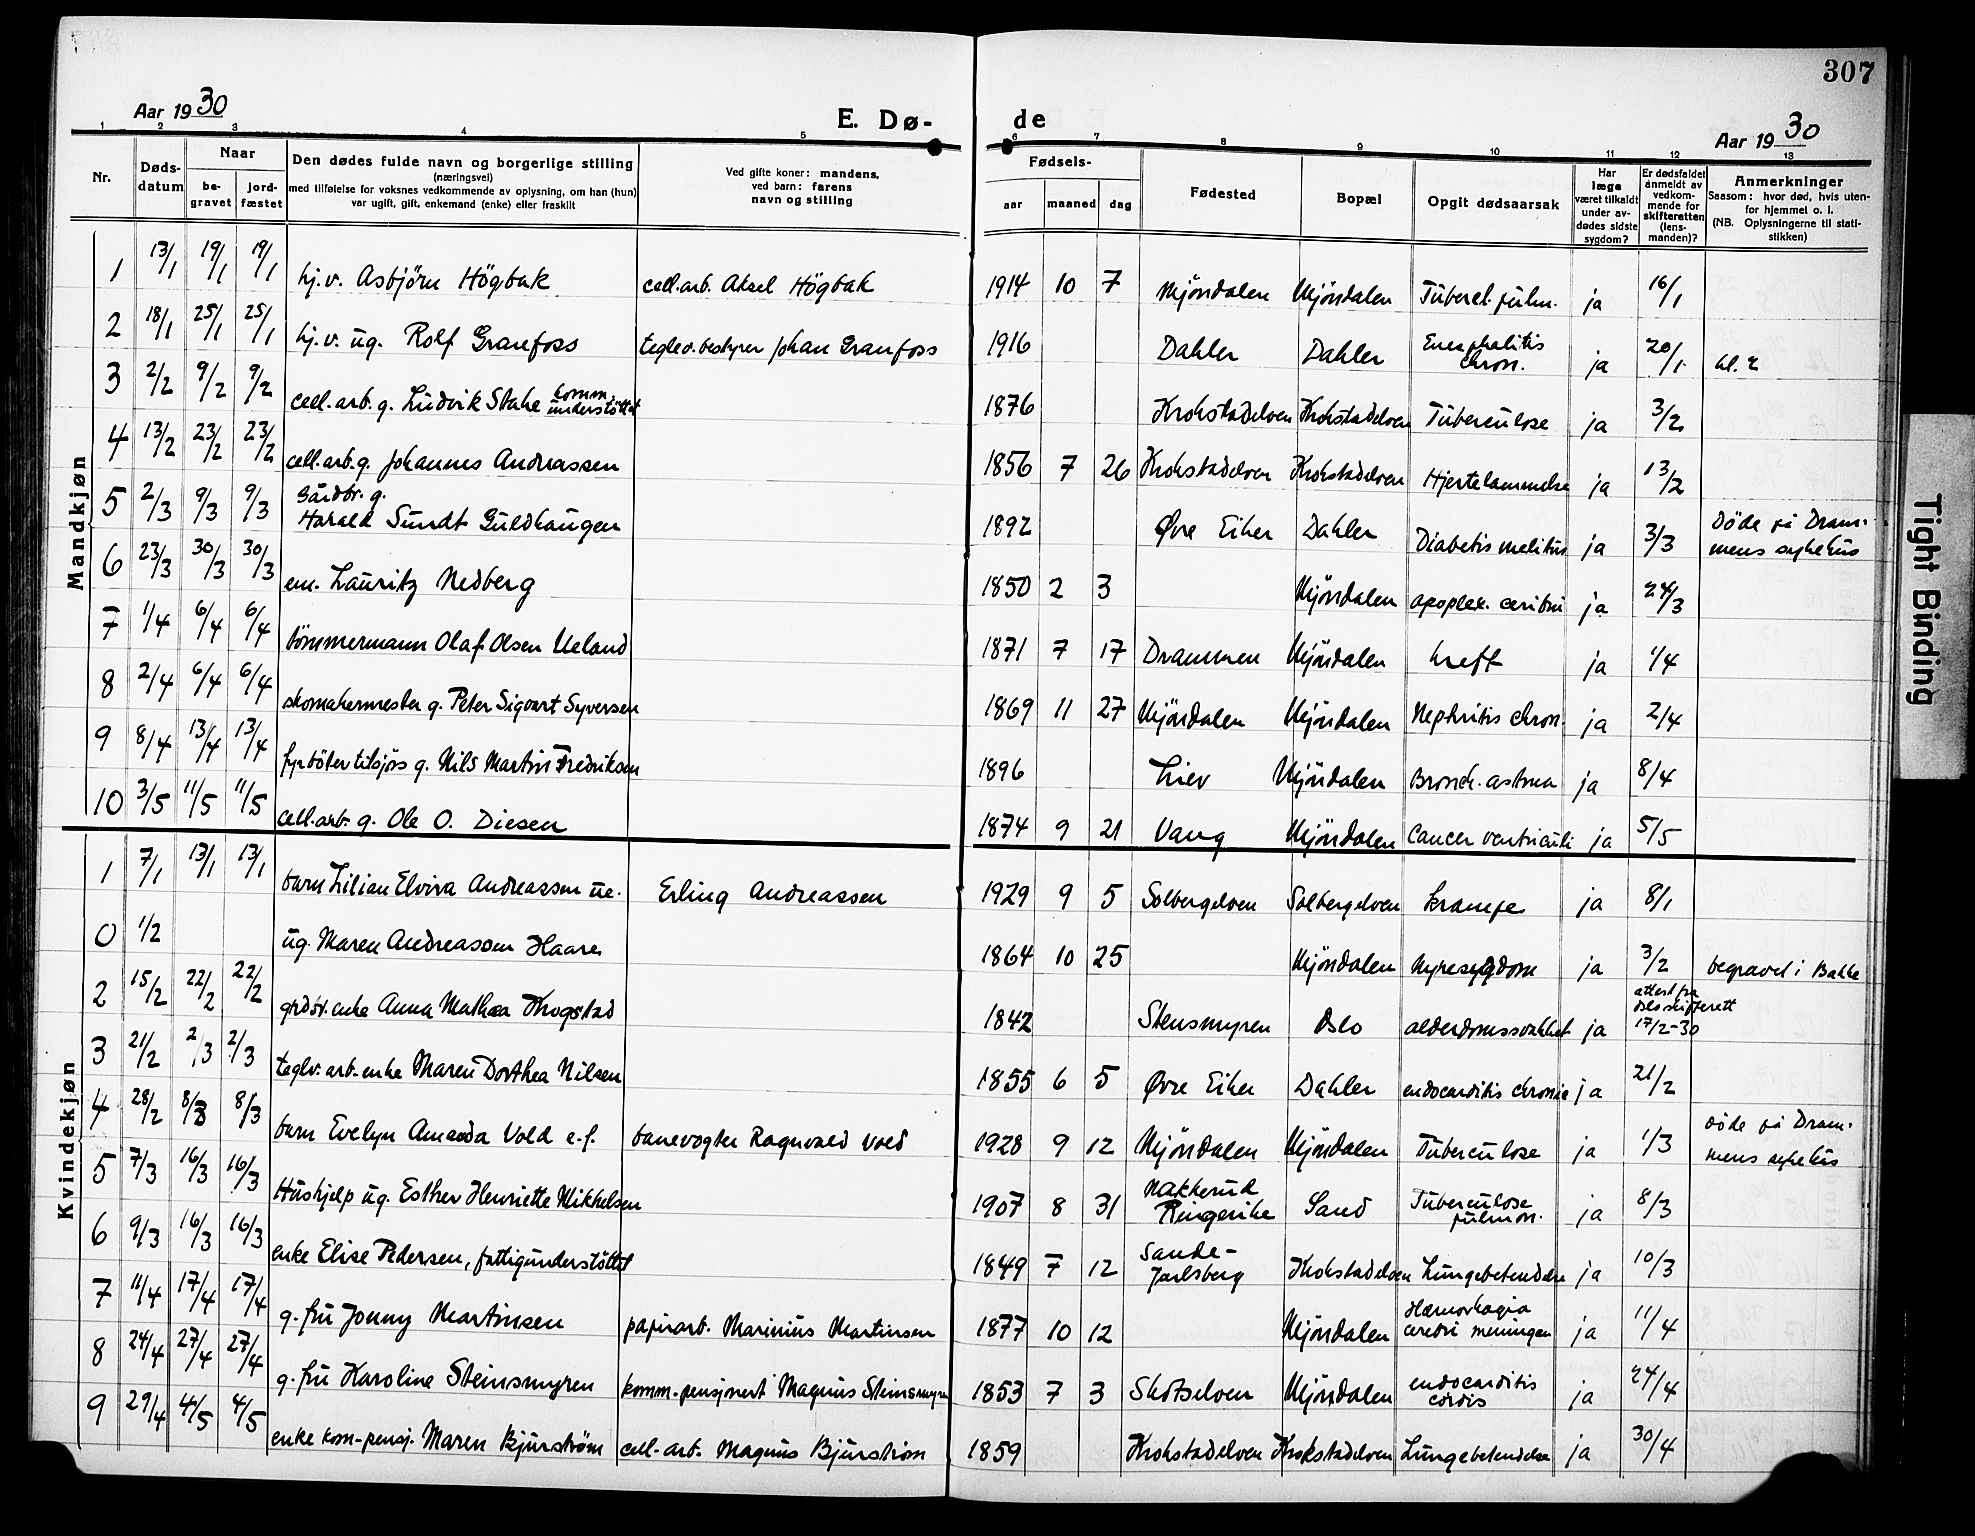 307
Aar 1930
E. Dø-
de
Aar 1930
1 2 3 4 5 6 7 8 9 10 11 12 13
Nr.
Døds-
datum
Naar
be-
gravet
jord-
fæstet
Den dødes fulde navn og borgerlige stilling
(næringsvei)
med tilføielse for voksnes vedkommende av oplysning, om han (hun)
var ugift, gift, enkemand (enke) eller fraskilt
Ved gifte koner: mandens,
ved barn: farens
navn og stilling
Fødsels-
aar maaned dag
Fødested
Bopæl
Opgit dødsaarsak
Har
læge
været tilkaldt
under av-
dødes sidste
sygdom?
Er dødsfaldet
anmeldt av
vedkom-
mende for
skifteretten
(lens-
manden)?
Anmerkninger
Saasom: hvor død, hvis uten-
for hjemmet o. l.
(NB. Oplysningerne til stati-
stikken)
Mandkjøn
1 13/1 19/1 19/1 hj.v. Asbjörn Högbak cell.arb. Aksel Högbak 1914 10 7 Mjöndalen Mjöndalen Tubercl. pulm. ja 16/1
2 18/1 25/1 25/1 hj.v. ug. Rolf Granfoss teglv.bestyrer Johan Granfoss 1916 Dahler Dahler Encephalitis chron. ja 20/1 kl. 2
3 2/2 9/2 9/2 cell.arb. g. Ludvik Stake komm. understöttet 1876 Krokstadelven Krokstadelven Tuberculose ja 3/2
4 13/2 23/2 23/2 cell.arb. g. Johannes Andreassen 1856 7 26 Krokstadelven Krokstadelven Hjertelammelse ja 13/2
5 2/3 9/3 9/3 Gårdbr. g. Harald Sundt Guldhaugen 1892 Øvre Eiker Dahler Diabetis melitus ja 3/3 Døde på Drammens sykehus
6 23/3 30/3 30/3 em. Lauritz Nedberg 1850 2 3 Mjöndalen apoplex. ceribri ja 24/3
7 1/4 6/4 6/4 tömmermann Olaf Olsen Ueland 1871 7 17 Drammen Mjöndalen kreft ja 1/4
8 2/4 6/4 6/4 skomakermester g. Peter Sigvart Syversen 1869 11 27 Mjöndalen Mjöndalen Nephritis chron. ja 2/4
9 8/4 13/4 13/4 fyrböter tilsjös g. Nils Martin Fredriksen 1896 Lier Mjöndalen Bronch. astma ja 8/4
10 3/5 11/5 11/5 cell.arb. g. Ole O. Diesen 1874 9 21 Vang Mjöndalen Cancer ventriculi ja 5/5
Kvindekjøn
1 7/1 13/1 13/1 barn Lilian Elvira Andreassen ue. Erling Andreassen 1929 9 5 Solbergelven Solbergelven krampe ja 8/1
0 1/2 ug. Maren Andreassen Haare 1864 10 25 Mjöndalen Nyresygdom ja 3/2 begravet i Bakke
2 15/2 22/2 22/2 grdbr.enke Anna Mathea Krogstad 1842 Stensmyren Oslo alderdomssvakhet ja attest fra Oslo skifterett 17/2-30
3 21/2 2/3 2/3 teglv.arb.enke Maren Dorthea Nilsen 1855 6 5 Øvre Eiker Dahler endocarditis chronic ja 21/2
4 28/2 8/3 8/3 barn Evelyn Amanda Vold e.f. banevogter Ragnvald Vold 1928 9 12 Mjöndalen Mjöndalen Tuberculose ja 1/3 döde på Drammens sykehus
5 7/3 16/3 16/3 Hushjelp ug. Esther Henriette Mikkelsen 1907 8 31 Nakkerud Ringerike Sand Tuberculose pulmon. ja 8/3
6 9/3 16/3 16/3 enke Elise Pedersen, fattigunderstöttet 1849 7 12 Sande-Jarlsberg Krokstadelven Lungebetendelse ja 10/3
7 11/4 17/4 17/4 g. fru Jonny Martinsen papirarb. Marinius Martinsen 1877 10 12 Mjöndalen Hæmorhagia cerebri meningen ja 11/4
8 24/4 27/4 27/4 g. fru Karoline Steinsmyren komm.pensjonert Magnus Steinsmyren 1853 7 3 Skotselven Mjöndalen endocarditis cordis ja 24/4
9 29/4 4/5 4/5 enke kom-pensj. Maren Bjurström cell.arb. Magnus Bjurström 1859 Krokstadelven Krokstadelven Lungebetendelse ja 30/4
Tight Binding